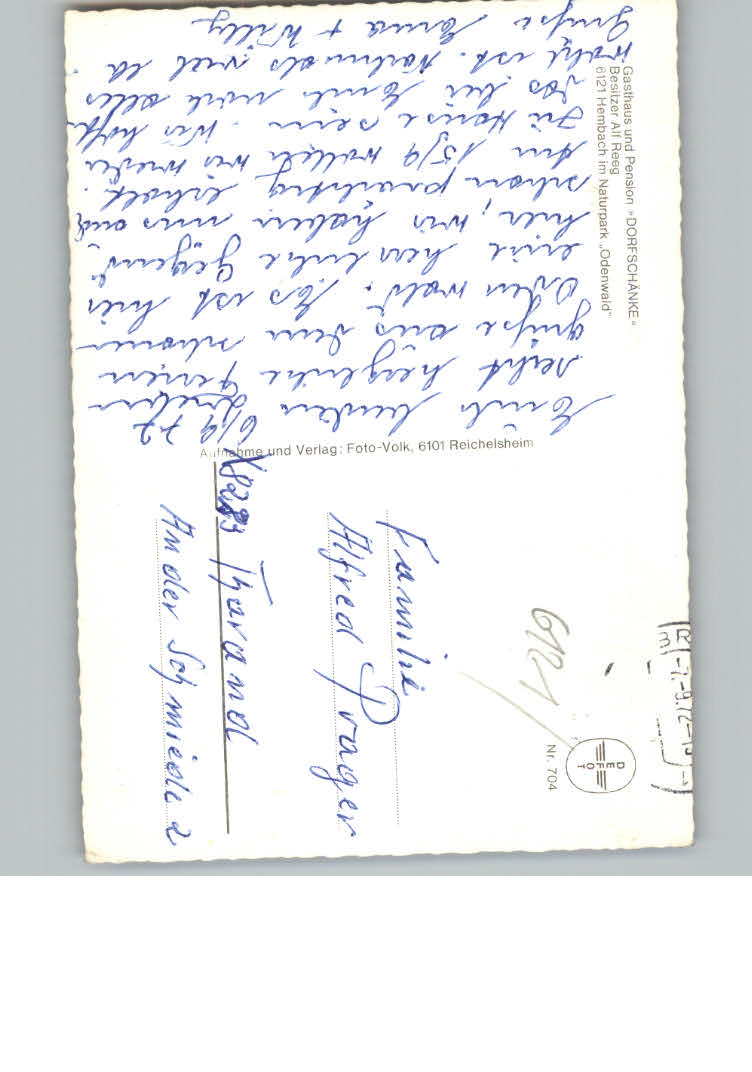 Gasthaus und Pension »DORFSCHÄNKE«
Besitzer Alf Reeg
6121 Hembach im Naturpark „Odenwald"
6/9 72
Euch Lieben
recht herzliche
Grüße aus dem schönen
Odenwald. Es ist hier
eine herrliche Gegend
hier, wir haben uns auch
schon prächtig erholt.
Am 15/9 wollen wir wieder
zu Hause sein. Wir hoffen
das bei Euch noch alles
ist. Nochmals viel
Grüße Erna + Willy
Aufnahme und Verlag: Foto-Volk, 6101 Reichelsheim
Familie
Alfred Prager
X8283 Tharand
An der Schmiede 2
6121
Nr. 704
DEFOT
-7.-9.72-